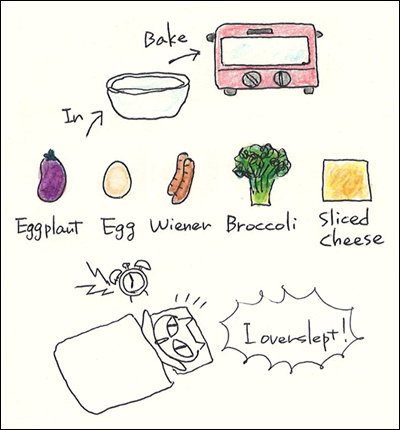 Bake
In
Eggplant Egg Wiener Broccoli Sliced
cheese
I overslept!